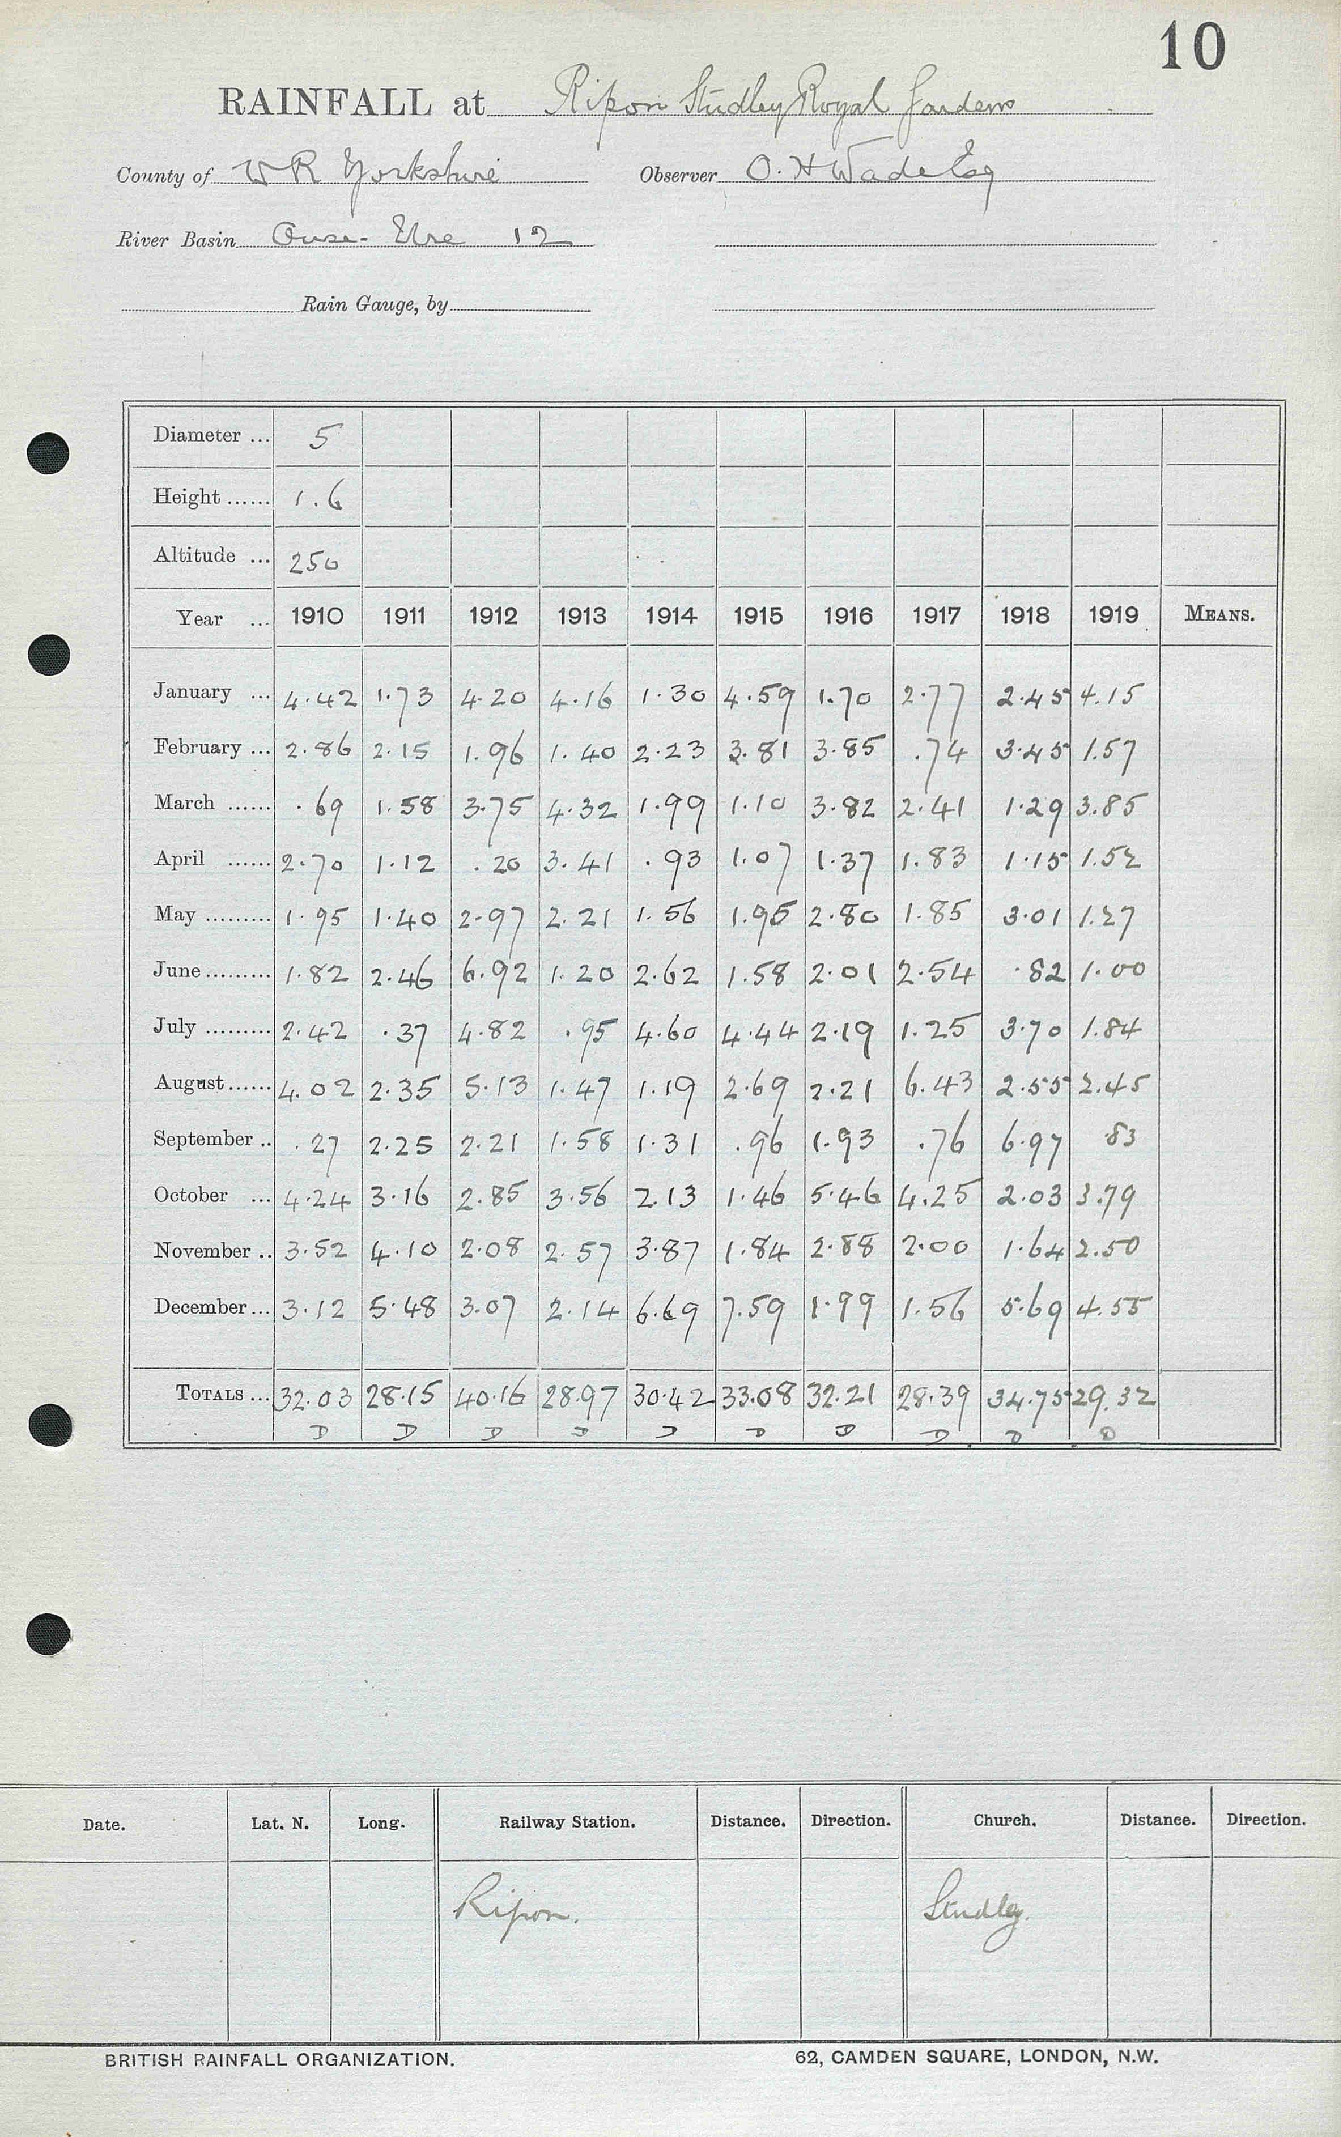 10
RAINFALL at Ripon Studley Royal Gardens
County of W R Yorkshire Observer O. H Wade Esq
River Basin Ouse- Ure 12
Rain Gauge, by
Diameter ... 5
Height ...... 1.6
Altitude ... 250
Year ... 1910 1911 1912 1913 1914 1915 1916 1917 1918 1919 MEANS.
January ... 4.42 1.73 4.20 4.16 1.30 4.59 1.70 2.77 2.45 4.15
February ... 2.86 2.15 1.96 1.40 2.23 3.81 3.85 .74 3.45 1.57
March ...... .69 1.58 3.75 4.32 1.99 1.10 3.82 2.41 1.29 3.85
April ...... 2.70 1.12 .20 3.41 .93 1.07 1.37 1.83 1.15 1.52
May ......... 1.95 1.40 2.97 2.21 1.56 1.95 2.80 1.85 3.01 1.27
June ......... 1.82 2.46 6.92 1.20 2.62 1.58 2.01 2.54 .82 1.00
July ......... 2.42 .37 4.82 .95 4.60 4.44 2.19 1.25 3.70 1.84
August ...... 4.02 2.35 5.13 1.47 1.19 2.69 2.21 6.43 2.55 2.45
September .. .27 2.25 2.21 1.58 1.31 .96 1.93 .76 6.97 .83
October ... 4.24 3.16 2.85 3.56 2.13 1.46 5.46 4.25 2.03 3.79
November .. 3.52 4.10 2.08 2.57 3.87 1.84 2.88 2.00 1.64 2.50
December ... 3.12 5.48 3.07 2.14 6.69 7.59 1.99 1.56 5.69 4.55
TOTALS ... 32.03 28.15 40.16 28.97 30.42 33.08 32.21 28.39 34.75 29.32
D D D D D D D D D D
Date. Lat. N. Long. Railway Station. Distance. Direction. Church. Distance. Direction.
Ripon. Studley.
BRITISH RAINFALL ORGANIZATION. 62, CAMDEN SQUARE, LONDON, N.W.